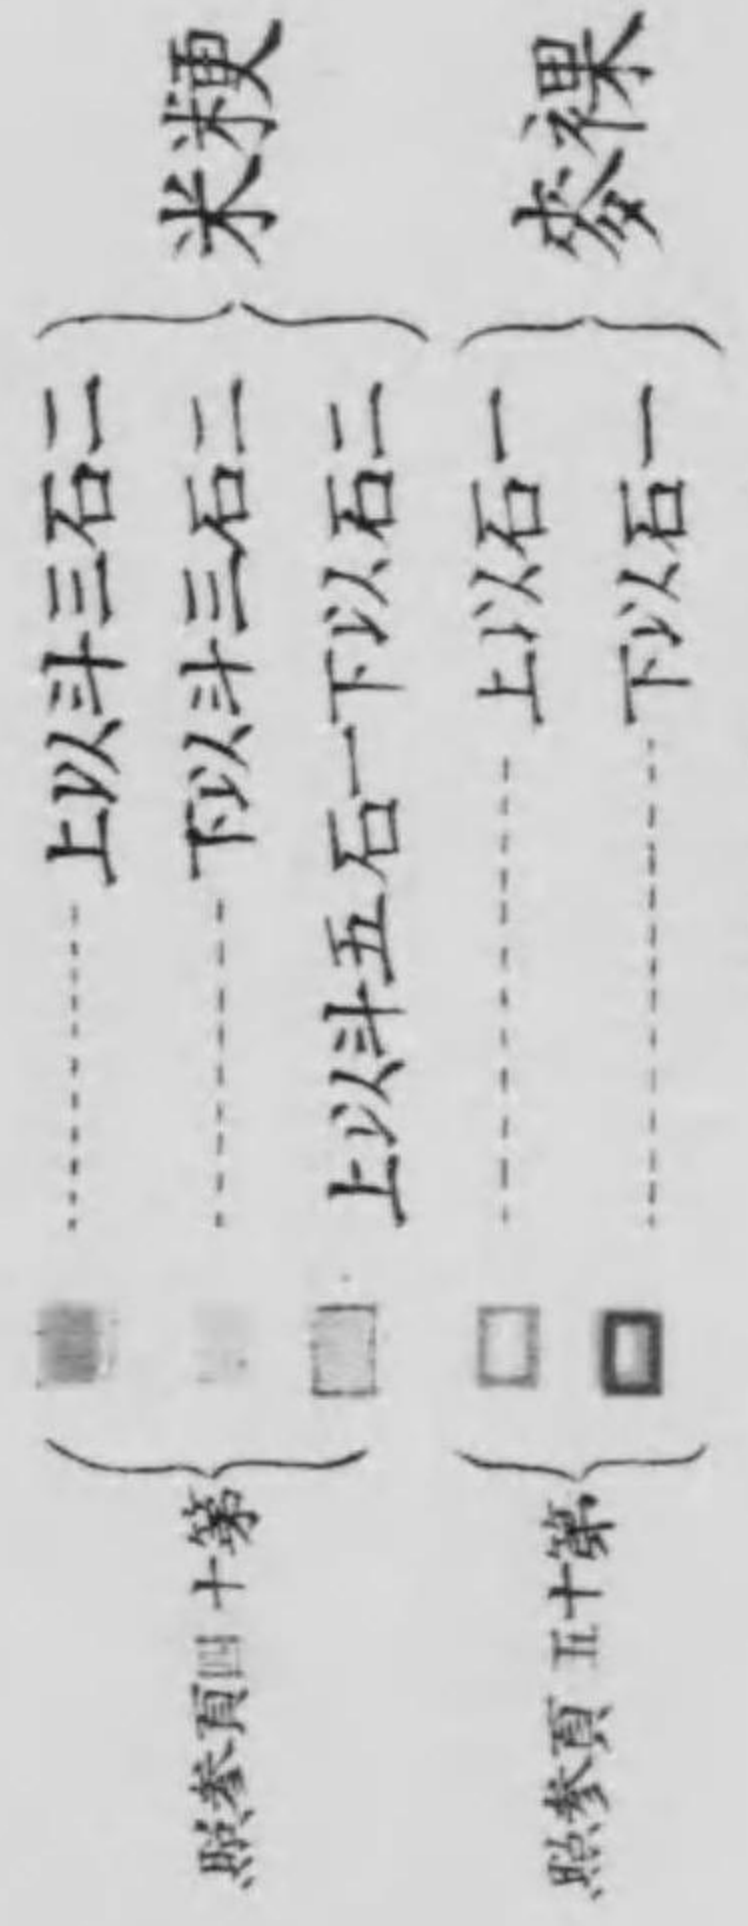 粳米
二石三斗以上
二石三斗以下
二石以下一石五斗以上
第十四頁参照
裸麥
一石以上
一石以下
第十五頁参照